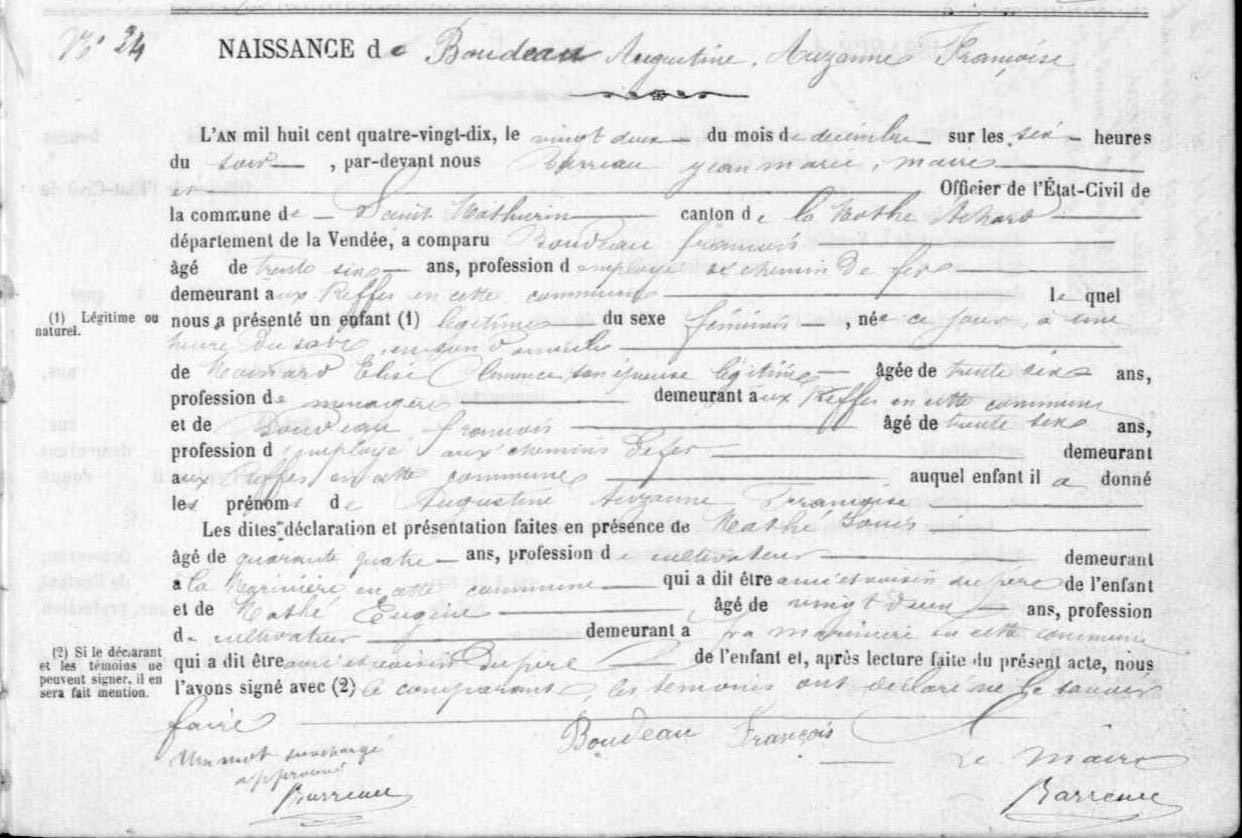 N° 24
NAISSANCE de Boudeau Augustine, Auzanne Françoise
L'AN mil huit cent quatre-vingt-dix, le vingt deux du mois de décembre sur les six heures
du soir, par-devant nous Barreau jean marie, maire
Officier de l'État-Civil de
la commune de Saint Mathurin canton de la Mothe Achard
département de la Vendée, a comparu Boudeau françois
âgé de trente six ans, profession d employé se chemin de fer
demeurant aux Reffes en cette commune lequel
(1) Légitime ou
naturel.
nous a présenté un enfant (1) légitime du sexe féminin, née ce jour, à une
heure du soir, en son domicile
de Moinard Elise Clémence, son épouse légitime âgée de trente six ans,
profession de menagère demeurant aux Reffes en cette commune
et de Boudeau françois âgé de trente six ans,
profession d employé aux chemins defer demeurant
aux Reffes en cette commune auquel enfant il a donné
les prénoms de Augustine Auzanne Françoise
Les dites déclaration et présentation faites en présence de Mathé Louis
âgé de quarante quatre ans, profession de cultivateur demeurant
a la Marinière en cette commune qui a dit être ami et voisin du père de l'enfant
et de Mathé Eugène âgé de vingt deux ans, profession
de cultivateur demeurant à la marinière en cette commune
(2) Si le déclarant
et les témoins ne
peuvent signer, il en
sera fait mention.
qui a dit être ami et voisin du père de l'enfant et, après lecture faite du présent acte, nous
l'avons signé avec (2) le comparant les temoins ont déclaré ne le savoir
faire
Un mot surchargé
approuvé
Barreau
Boudeau François
Le Maire
Barreau